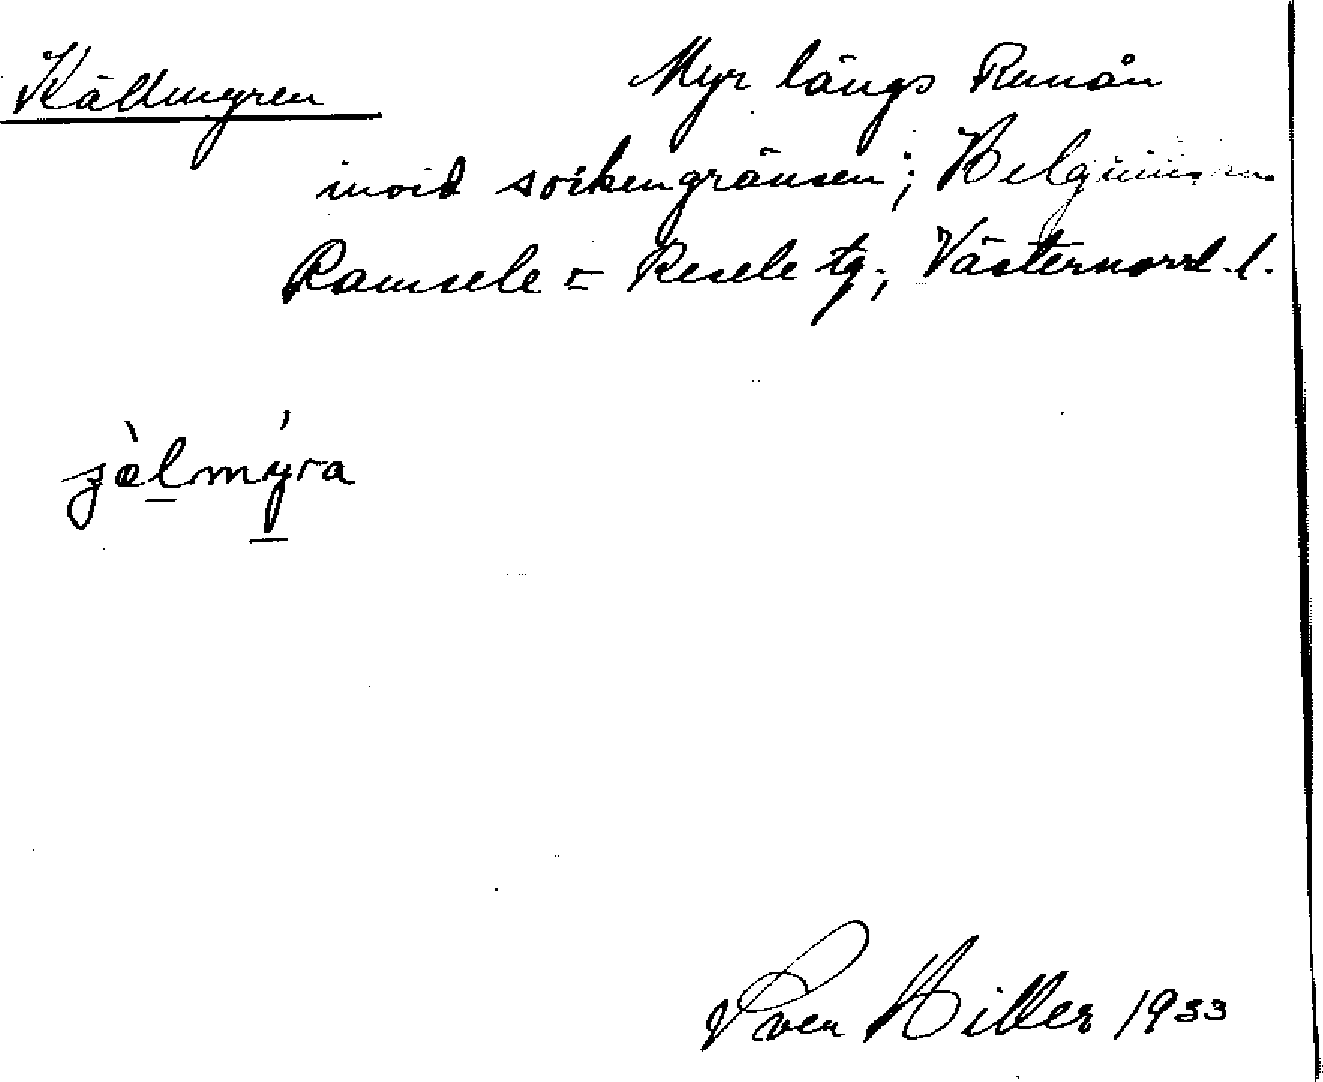 Källmyren
Myr längs Runån
invid sockengränsen; Helgums sn
Ramsele - Resele tg., Västernorrl. l.
Sven Hiller 1933